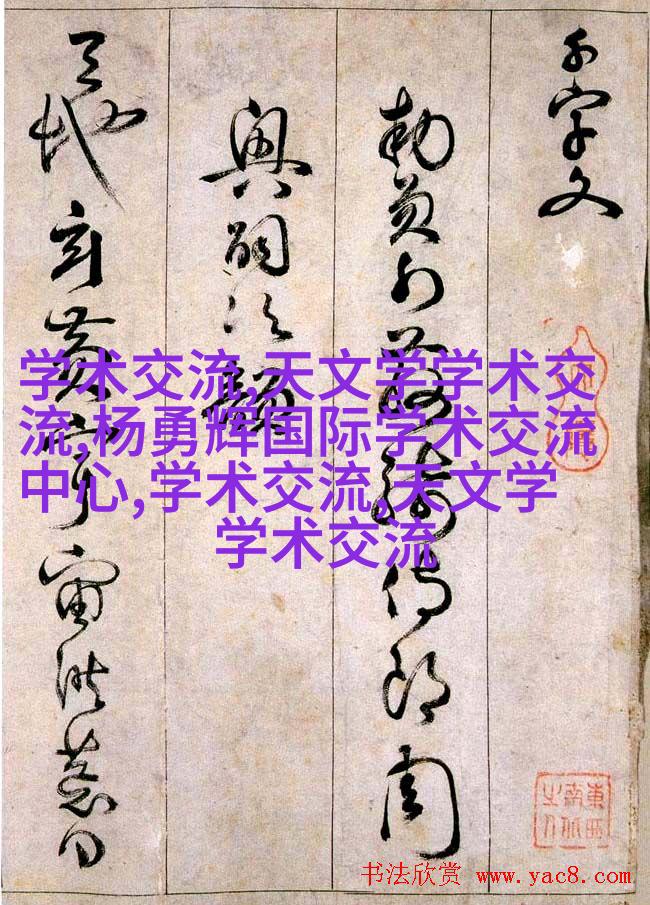 千字文
勅員外散騎侍郎周
興嗣次韻
天地玄黃宇宙洪荒日
学术交流,天文学学术交
流,杨勇辉国际学术交流
中心,学术交流,天文学
学术交流
東西南北之人
书法欣赏 www.yac8.com